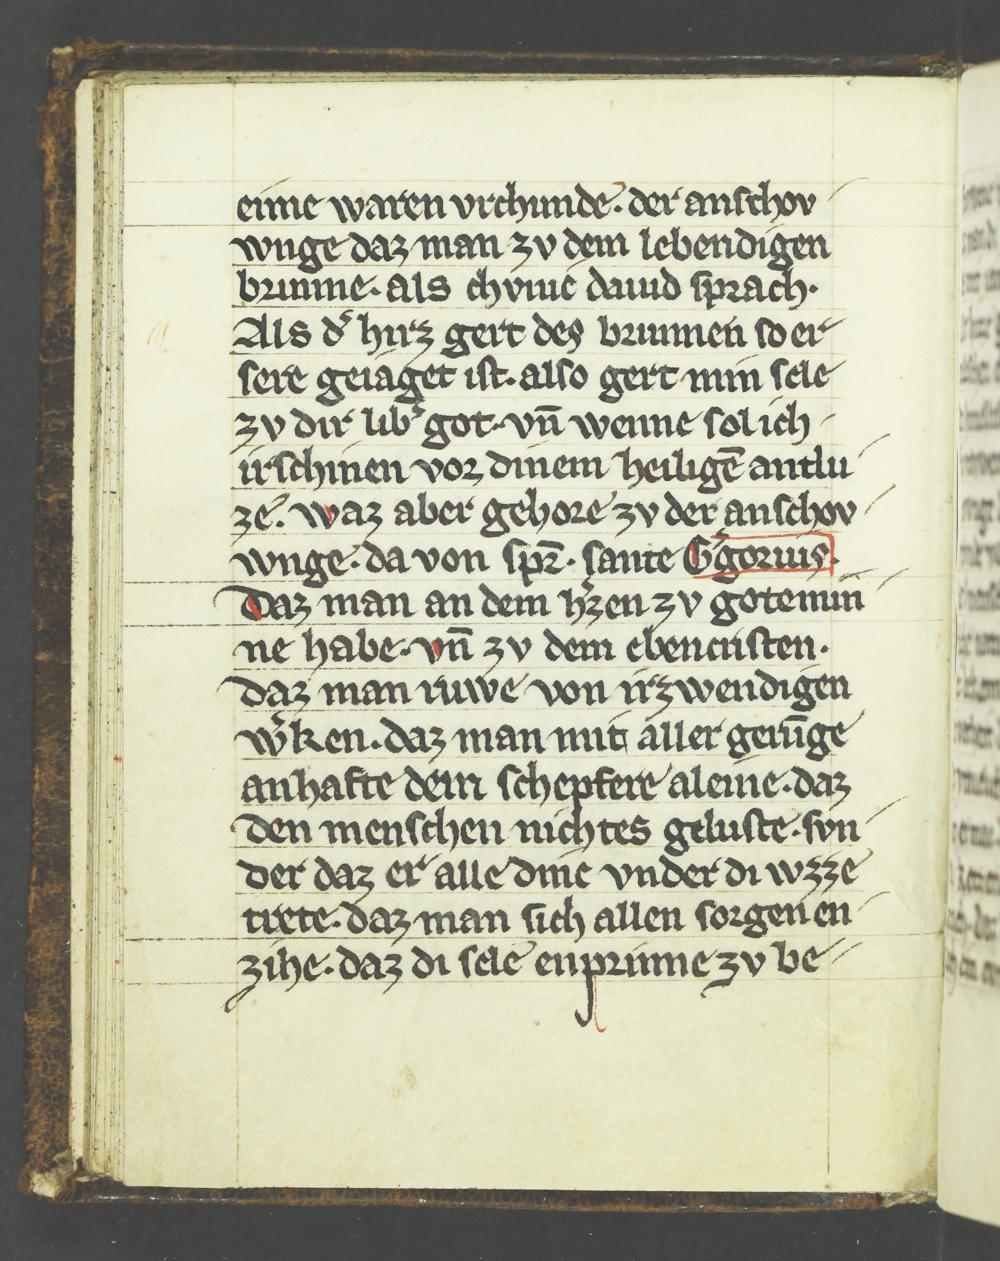 eime waren vrchunde. der anschov
wnge daz man zv dem lebendigen
brunne. als chvnic dauid sprach.
Als dˢ hirz gert des brunnen so er
sere geiaget ist. also gert min sele
zv dir libˢ got. vn̄ wenne sol ich
irschinen vor dinem heiligē antlu
ze. waz aber gehore zv der anschov
wnge. da von spr̄. sante Gˢgorius.
Daz man an dem hˢzen zv gote min
ne habe. vn̄ zv dem ebencristen.
daz man ruwe von irzwendigen
wˢken. daz man mit aller gerūge
anhafte dem schepfere aleine. daz
den menschen nichtes geluste. svn
der daz er alle dinc vnder di wzze
trete. daz man sich allen sorgen en
zihe. daz di sele enprinne zv be